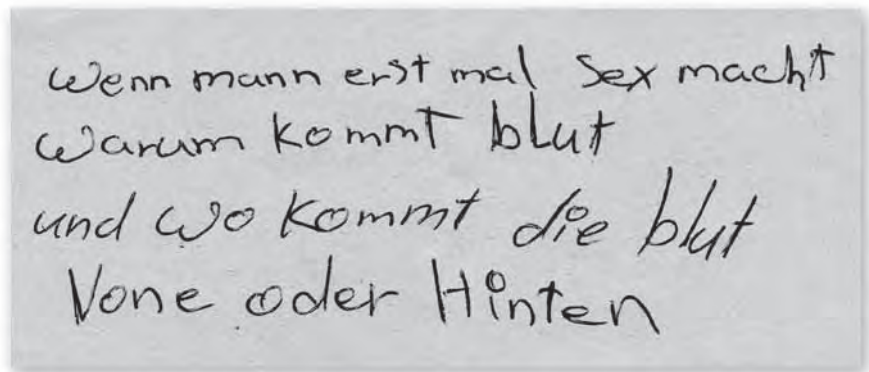 wenn mann erst mal sex macht
warum kommt blut
und wo kommt die blut
Vone oder Hinten